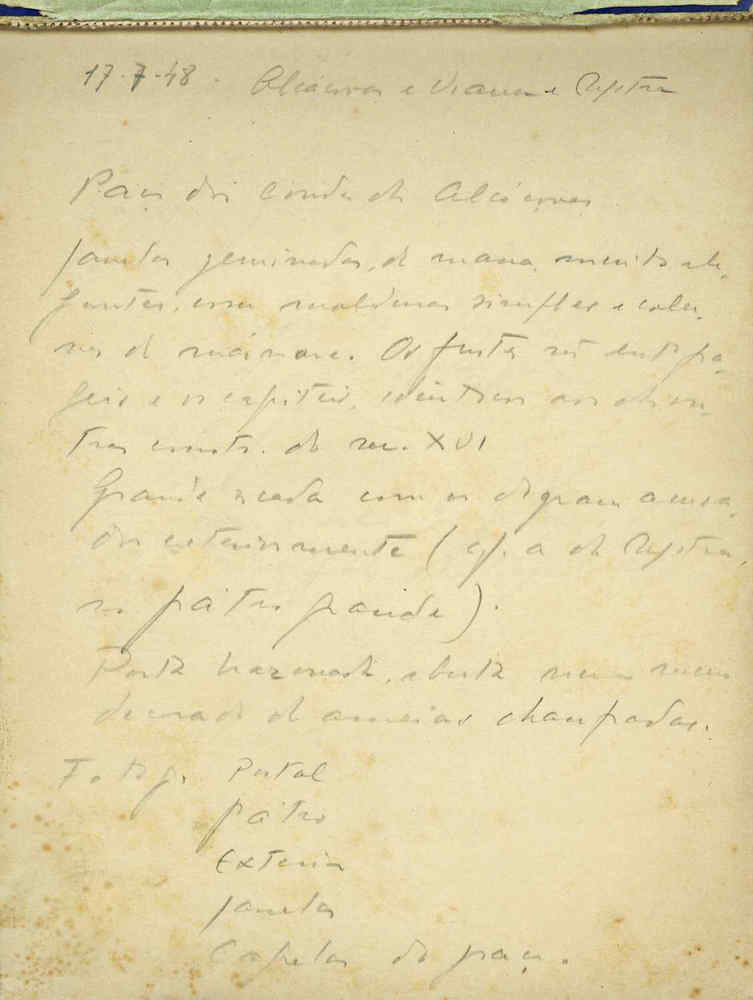 17-7-48. Alcáçovas e Viana e
Paço dos Condes de Alcáçovas
Janelas geminadas, de massa, muito ele-
gantes, com molduras simples e colu-
nas de mármore. Os fustes
e os capiteis, idênticos aos de ou-
tras constr. do sec. XVI
Grande escada com os degraus
dos exteriormente (cf. a de
no pátio grande).
Porta brazonada, aberta num muro
decorado de ameias chanfradas.
Fotog. Portal
pátio
Exterior
janelas
Capelas do paço.